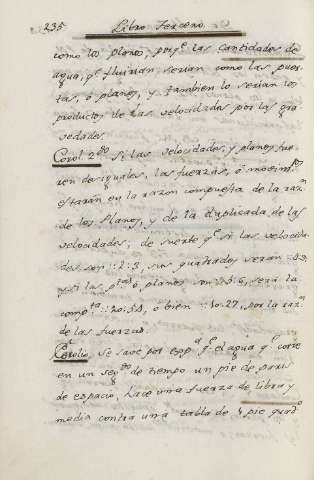 235 Libro Tercero.
como los planos, porq.e las cantidades de
agua, q.e fluirian serian como las puer-
tas, ò planos, y tambien lo serian los
productos de las velocidades por las gra-
vedades.
Corol. 2.do Si las velocidades, y planos fue-
ren desiguales, las fuerzas, ò movim.tos
estaràn en la razon compuesta de la raz.n
de los Planos, y de la duplicada de las
velocidades; de suerte q.e si las velocida-
des son ::2:3, sus quadrados seràn
y si las ò planos son ::5:6, serà la
comp.ta ::20:54, o bien ::10:27, por la raz.n
de las fuerzas.
se save por esp.a q.e el agua q.e corre
en un seg.do de tiempo un pie de paris
de espacio, hace una fuerza de libra y
media contra una tabla de 4 pie quad.o